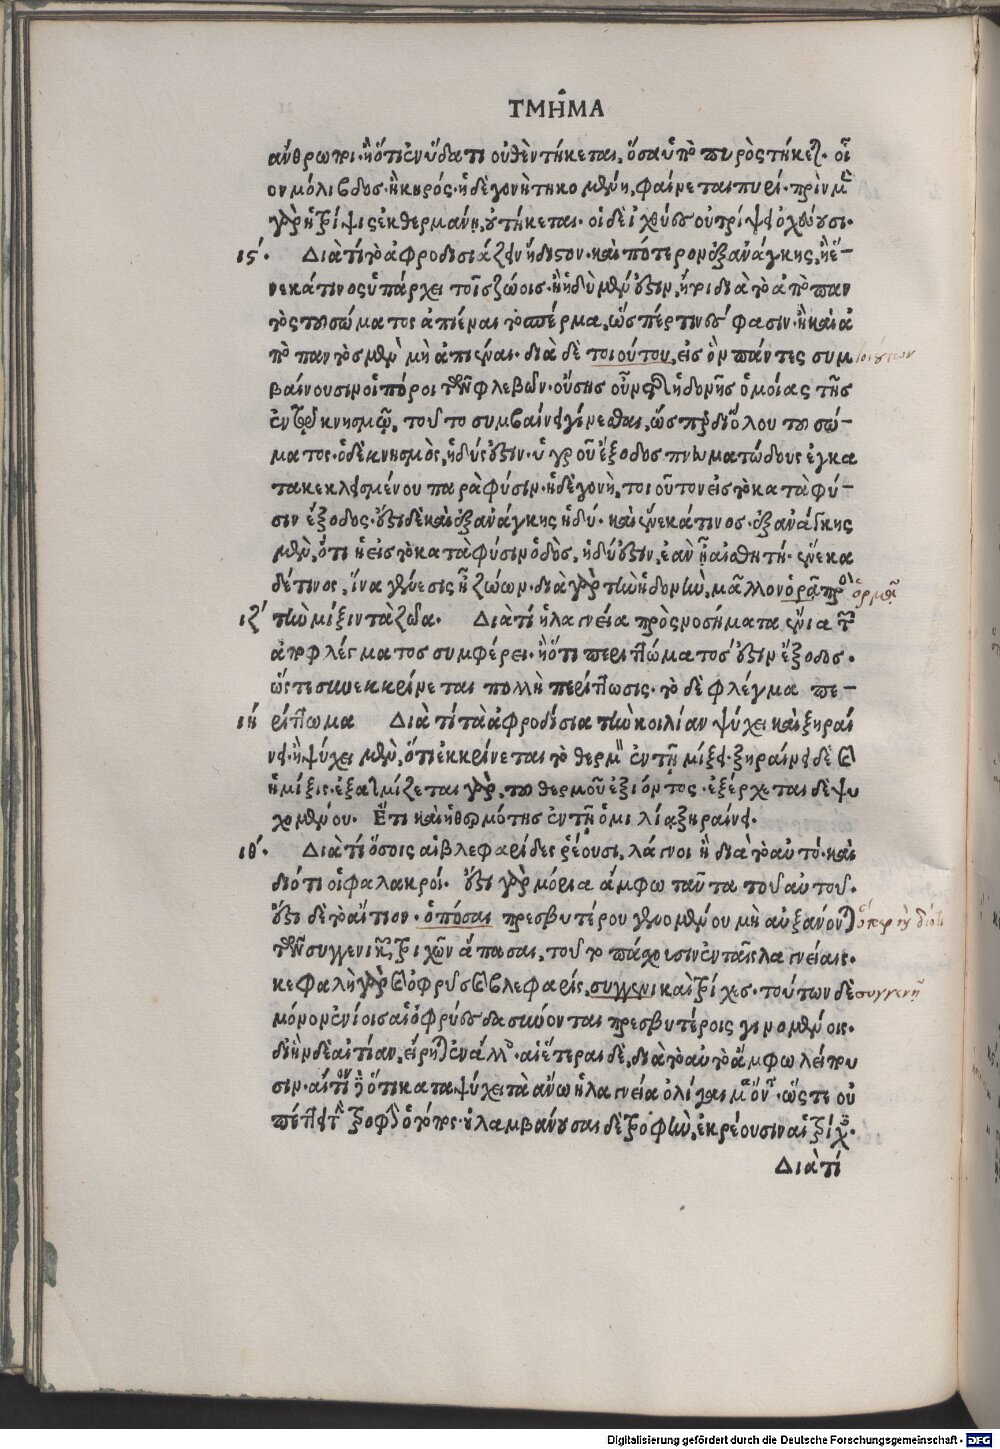 ΤΜΗ͂ΜΑ
ἄνθρωποι. ἢ ὅτι ἐν ὕδατι οὐθὲν τήκεται, ὅσα ὑπὸ πυρὸς τήκεται. οἷ
ον μόλιβδος. ἢ κηρός. ἡ δὲ γονὴ τηκομένη, φαίνεται πυρί. πρὶν μὲν
γὰρ ἡ τρίψις ἐκθερμάνῃ, οὐ τήκεται. οἱ δὲ ἰχθύες οὐ τρίψει ὀχεύουσι.
ιϛ΄. Διὰ τί τὸ ἀφροδισιάζειν ἥδιστον. καὶ πότερον ἐξ ἀνάγκης, ἢ ἕ-
νεκά τινος ὑπάρχει τοῖς ζῴοις. ἢ ἡδὺ μέν ἐστιν, ἤτοι διὰ τὸ ἀπὸ παν
τὸς τοῦ σώματος ἀπιέναι τὸ σπέρμα, ὥσπέρ τινές φασιν. ἢ καὶ ἀ
πὸ παντὸς μὲν μὴ ἀπιέναι. διὰ δὲ τοιούτου, εἰς ὃν πάντες συμ
βαίνουσιν οἱ πόροι τῶν φλεβῶν. οὔσης οὖν τῆς ἡδονῆς ὁμοίας τῆς
ἐν τῷ κνησμῷ, τοῦτο συμβαίνει γίνεσθαι, ὥσπερ δι' ὅλου τοῦ σώ-
ματος. ὁ δὲ κνησμὸς, ἡδύς ἐστιν. ὑγροῦ ἔξοδος πνευματώδους ἐγκα
τακεκλεισμένου παρὰ φύσιν. ἡ δὲ γονὴ, τοιοῦτον εἰς τὸ κατὰ φύ-
σιν ἔξοδος. ἔστι δὲ καὶ ἐξ ἀνάγκης ἡδύ. καὶ ἕνεκά τινος. ἐξ ἀνάγκης
μὲν, ὅτι ἡ εἰς τὸ κατὰ φύσιν ὁδὸς, ἡδύ ἐστιν, ἐὰν ᾖ αἰσθητή. ἕνεκα
δέ τινος, ἵνα γένεσις ᾖ ζώων. διὰ γὰρ τὴν ἡδονὴν, μᾶλλον ὁρᾷ πρὸς
ιζ΄ τὴν μίξιν τὰ ζῶα. Διὰ τί ἡ λαγνεία πρὸς νοσήματα ἔνια τῶν
ἀπὸ φλέγματος συμφέρει. ἢ ὅτι περιττώματός ἐστιν ἔξοδος.
ὥστε συνεκκρίνεται πολλὴ περίττωσις. τὸ δὲ φλέγμα πε-
ιή ρίττωμα Διὰ τί τὰ ἀφροδίσια τὴν κοιλίαν ψύχει καὶ ξηραί
νει. ἢ ψύχει μὲν, ὅτι ἐκκρίνεται τὸ θερμὸν ἐν τῇ μίξει. ξηραίνει δὲ καὶ
ἡ μίξις. ἐξατμίζεται γὰρ, τοῦ θερμοῦ ἐξιόντος. ἐξέρχεται δὲ ψυ
χομένου. Ἔτι καὶ ἡ θερμότης ἐν τῇ ὁμιλίᾳ ξηραίνει.
ιθ΄. Διὰ τί ὅσοις αἱ βλεφαρίδες ῥέουσι, λάγνοι ἢ διὰ τὸ αὐτό. καὶ
διότι οἱ φαλακροί. ἔστι γὰρ μόρια ἄμφω ταῦτα τοῦ αὐτοῦ.
ἔστι δὲ τὸ αἴτιον. ὁπόσαι πρεσβυτέρου γενομένου μὴ αὐξάνονται
τῶν συγγενικῶν τριχῶν ἅπασαι, τοῦτο πάσχουσιν ἐν ταῖς λαγνείαις.
κεφαλὴ γὰρ καὶ ὀφρὺς καὶ βλεφαρὶς, συγγενικαὶ τρίχες. τούτων δὲ
μόνον ἐνίοις αἱ ὀφρύες δασύνονται πρεσβυτέροις γινομένοις.
δι' ἣν δὲ αἰτίαν, εἴρηται ἐν ἄλλοις. αἱ ἕτεραι δὲ, διὰ τὸ αὐτὸ ἄμφω λείπου
σιν. αἴτιον δὲ ὅτι καταψύχει τὰ ἄνω ἡ λαγνεία ὀλίγαιμα ὄντα. ὥστε οὐ
πέττει τὴν τροφὴν ὁ τόπος. οὐ λαμβάνουσαι δὲ τροφὴν, ἐκρέουσιν αἱ τρίχες.
Διὰ τί
ὁρμᾷ
συγγενῆ
Digitalisierung gefördert durch die Deutsche Forschungsgemeinschaft - DFG